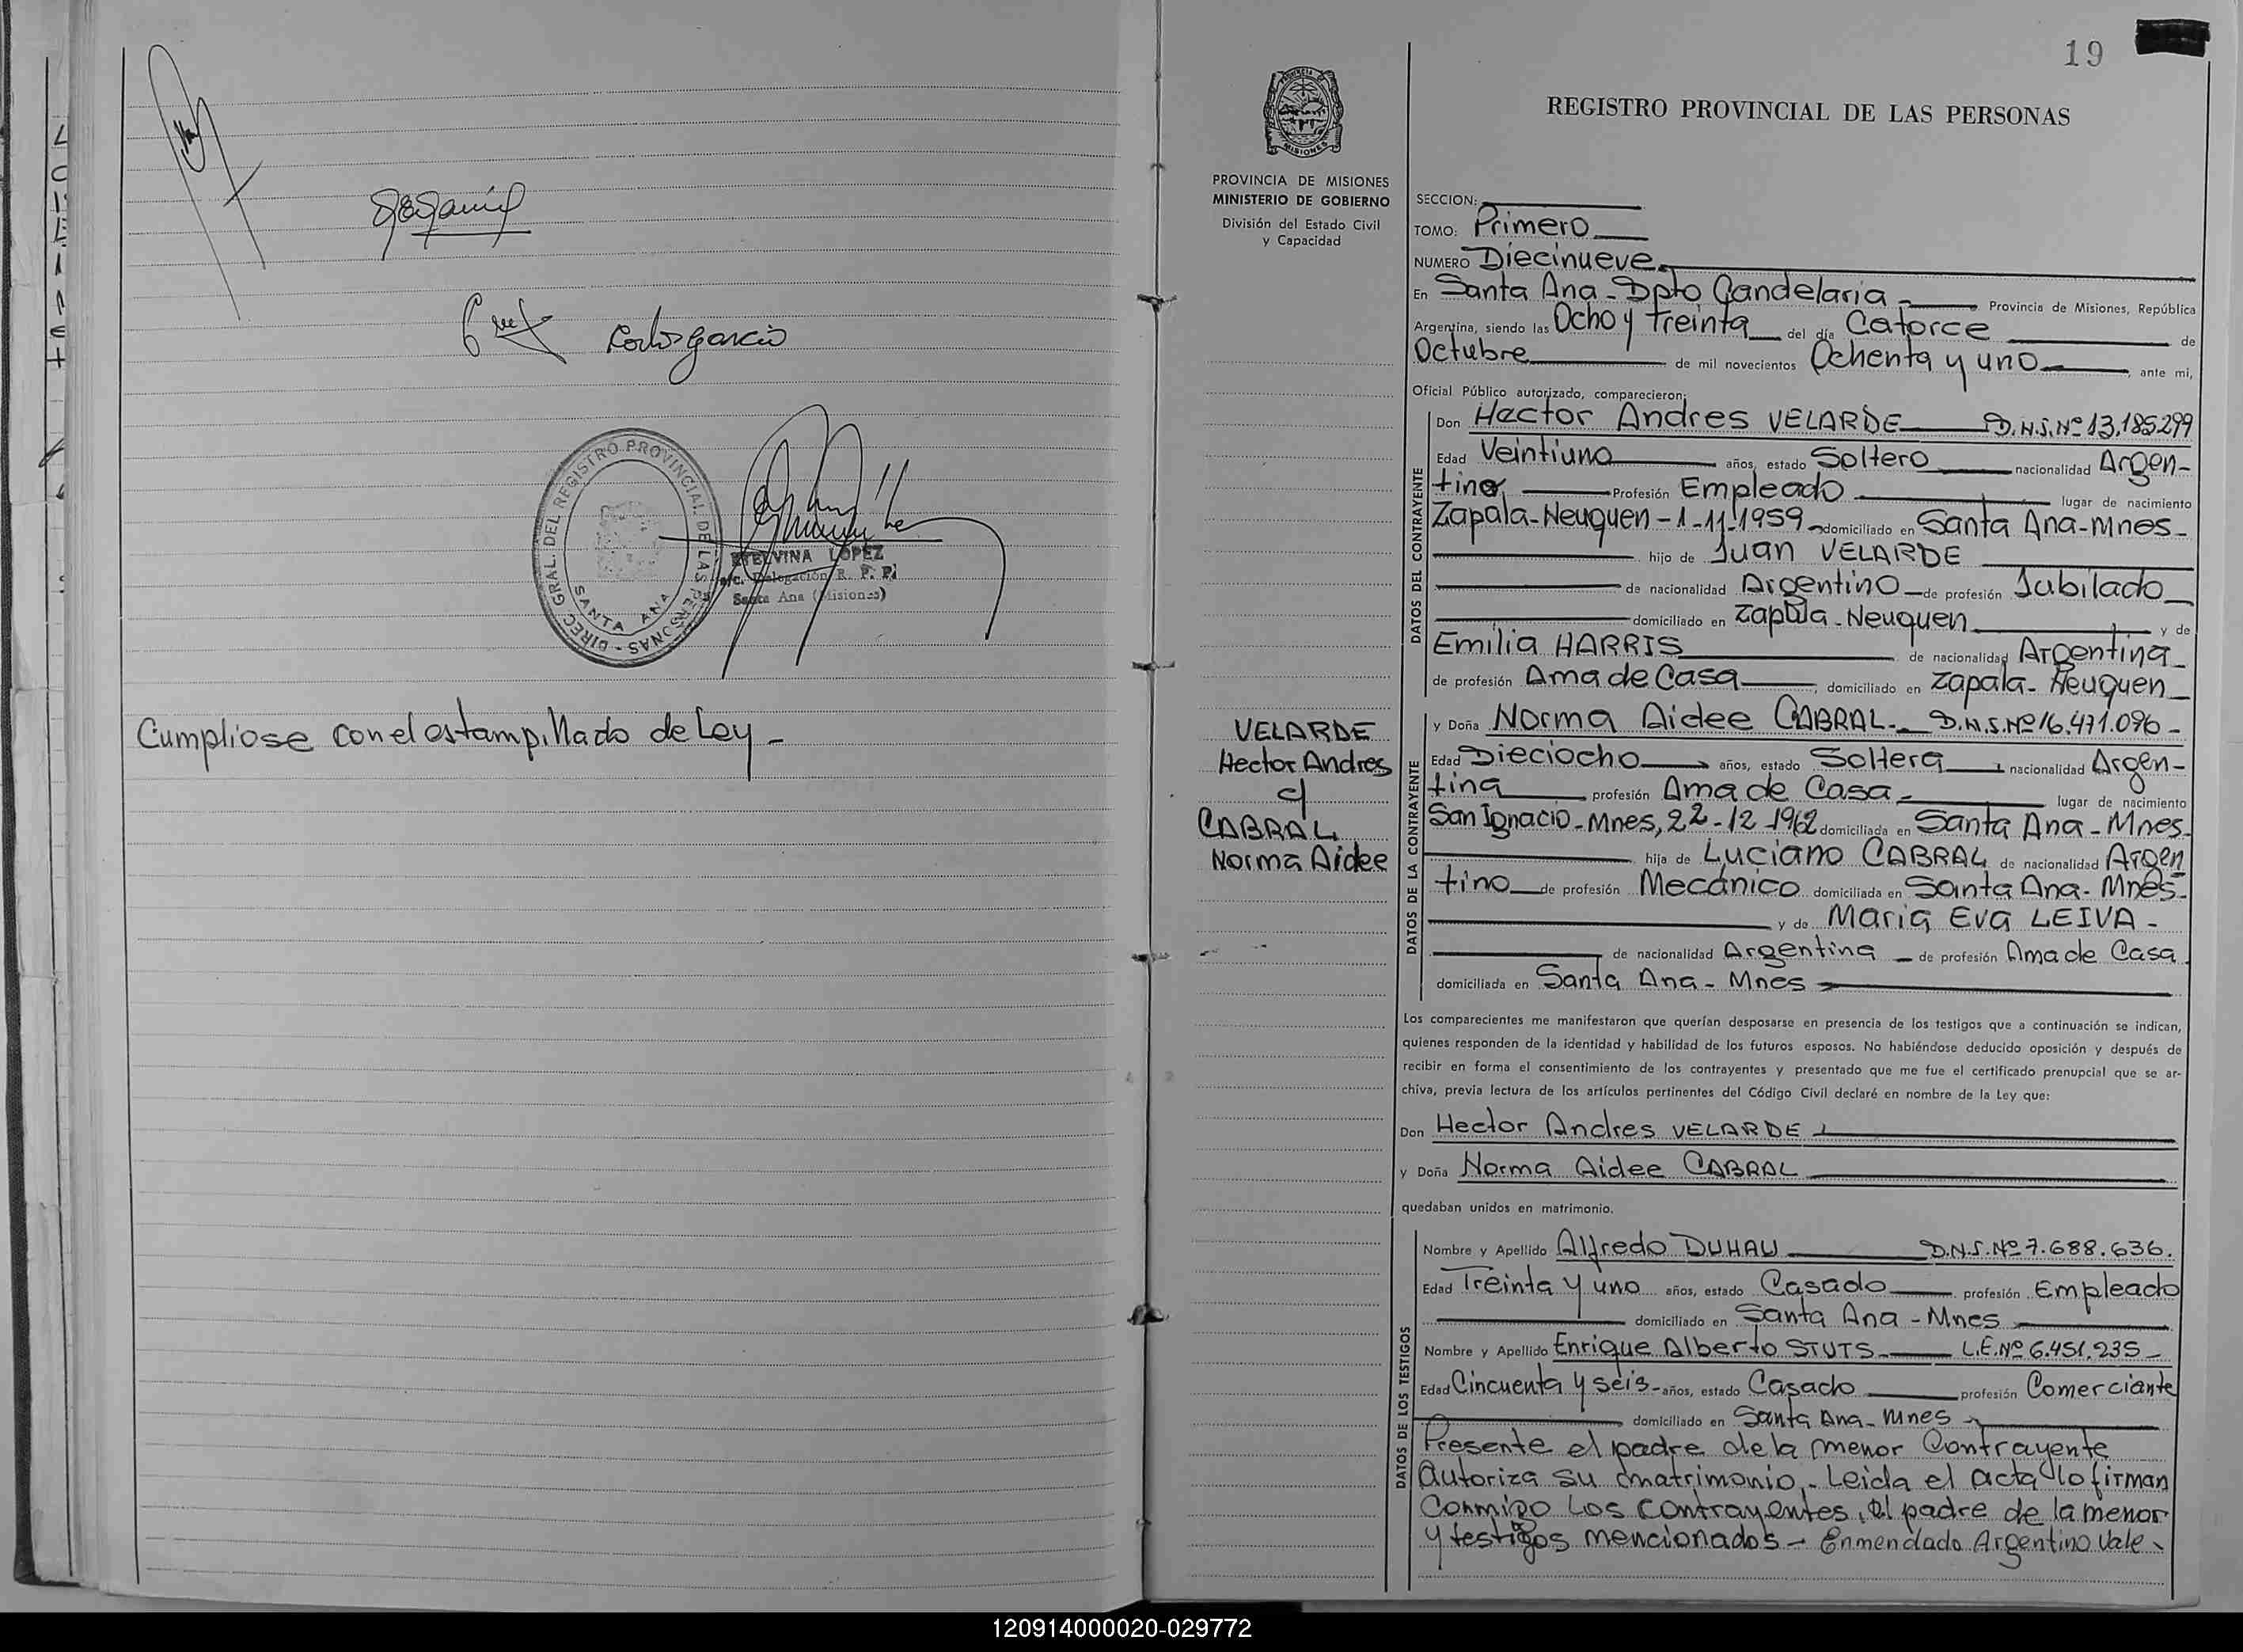 DIREC. GRAL. DEL REGISTRO PROVINCIAL DE LAS PERSONAS - SANTA ANA
ETELVINA LOPEZ
a/c. Delegación R. P. P.
Santa Ana (Misiones)
Cumpliose con el estampillado de Ley -
19
PROVINCIA DE MISIONES
MINISTERIO DE GOBIERNO
División del Estado Civil
y Capacidad
VELARDE
Hector Andres
c/
CABRAL
Norma Aidee
REGISTRO PROVINCIAL DE LAS PERSONAS
SECCION:
TOMO: Primero
NUMERO Diecinueve
En Santa Ana - Dpto Candelaria - Provincia de Misiones, República
Argentina, siendo las Ocho y treinta del día Catorce de
Octubre de mil novecientos Ochenta y uno, ante mi,
Oficial Público autorizado, comparecieron:
DATOS DEL CONTRAYENTE
Don Hector Andres VELARDE D.N.I.Nº 13.185.299
Edad Veintiuno años, estado Soltero nacionalidad Argen-
tino, Profesión Empleado lugar de nacimiento
Zapala-Neuquen-1-11-1959- domiciliado en Santa Ana-Mnes-
hijo de Juan VELARDE
de nacionalidad Argentino de profesión Jubilado
domiciliado en Zapala-Neuquen y de
Emilia HARRIS de nacionalidad Argentina
de profesión Ama de Casa, domiciliado en Zapala-Neuquen
DATOS DE LA CONTRAYENTE
y Doña Norma Aidee CABRAL- D.N.I.Nº 16.471.096-
Edad Dieciocho años, estado Soltera nacionalidad Argen-
tina profesión Ama de Casa- lugar de nacimiento
San Ignacio-Mnes, 22-12-1962 domiciliada en Santa Ana-Mnes-
hija de Luciano CABRAL de nacionalidad Argen
tino de profesión Mecánico domiciliada en Santa Ana-Mnes-
y de Maria Eva LEIVA-
de nacionalidad Argentina de profesión Ama de Casa
domiciliada en Santa Ana-Mnes
Los comparecientes me manifestaron que querían desposarse en presencia de los testigos que a continuación se indican,
quienes responden de la identidad y habilidad de los futuros esposos. No habiéndose deducido oposición y después de
recibir en forma el consentimiento de los contrayentes y presentado que me fue el certificado prenupcial que se ar-
chiva, previa lectura de los artículos pertinentes del Código Civil declaré en nombre de la Ley que:
Don Hector Andres VELARDE
y Doña Norma Aidee CABRAL
quedaban unidos en matrimonio.
DATOS DE LOS TESTIGOS
Nombre y Apellido Alfredo DUHAU D.N.I.Nº 7.688.636.
Edad Treinta y uno años, estado Casado profesión Empleado
domiciliado en Santa Ana-Mnes
Nombre y Apellido Enrique Alberto STUTS L.E.Nº 6.451.235-
Edad Cincuenta y seis- años, estado Casado profesión Comerciante
domiciliado en Santa Ana-Mnes
Presente el padre de la menor Contrayente
Autoriza su matrimonio.- Leida el acta lo firman
Conmigo los contrayentes, el padre de la menor
y testigos mencionados- Enmendado Argentino Vale-
120914000020-029772